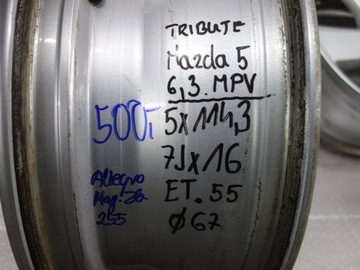 TRIBUTE
Mazda 5
6,3. MPV
500,-
5x114,3
7Jx16
ET. 55
ø67
Allegro
Mag. Ja
255